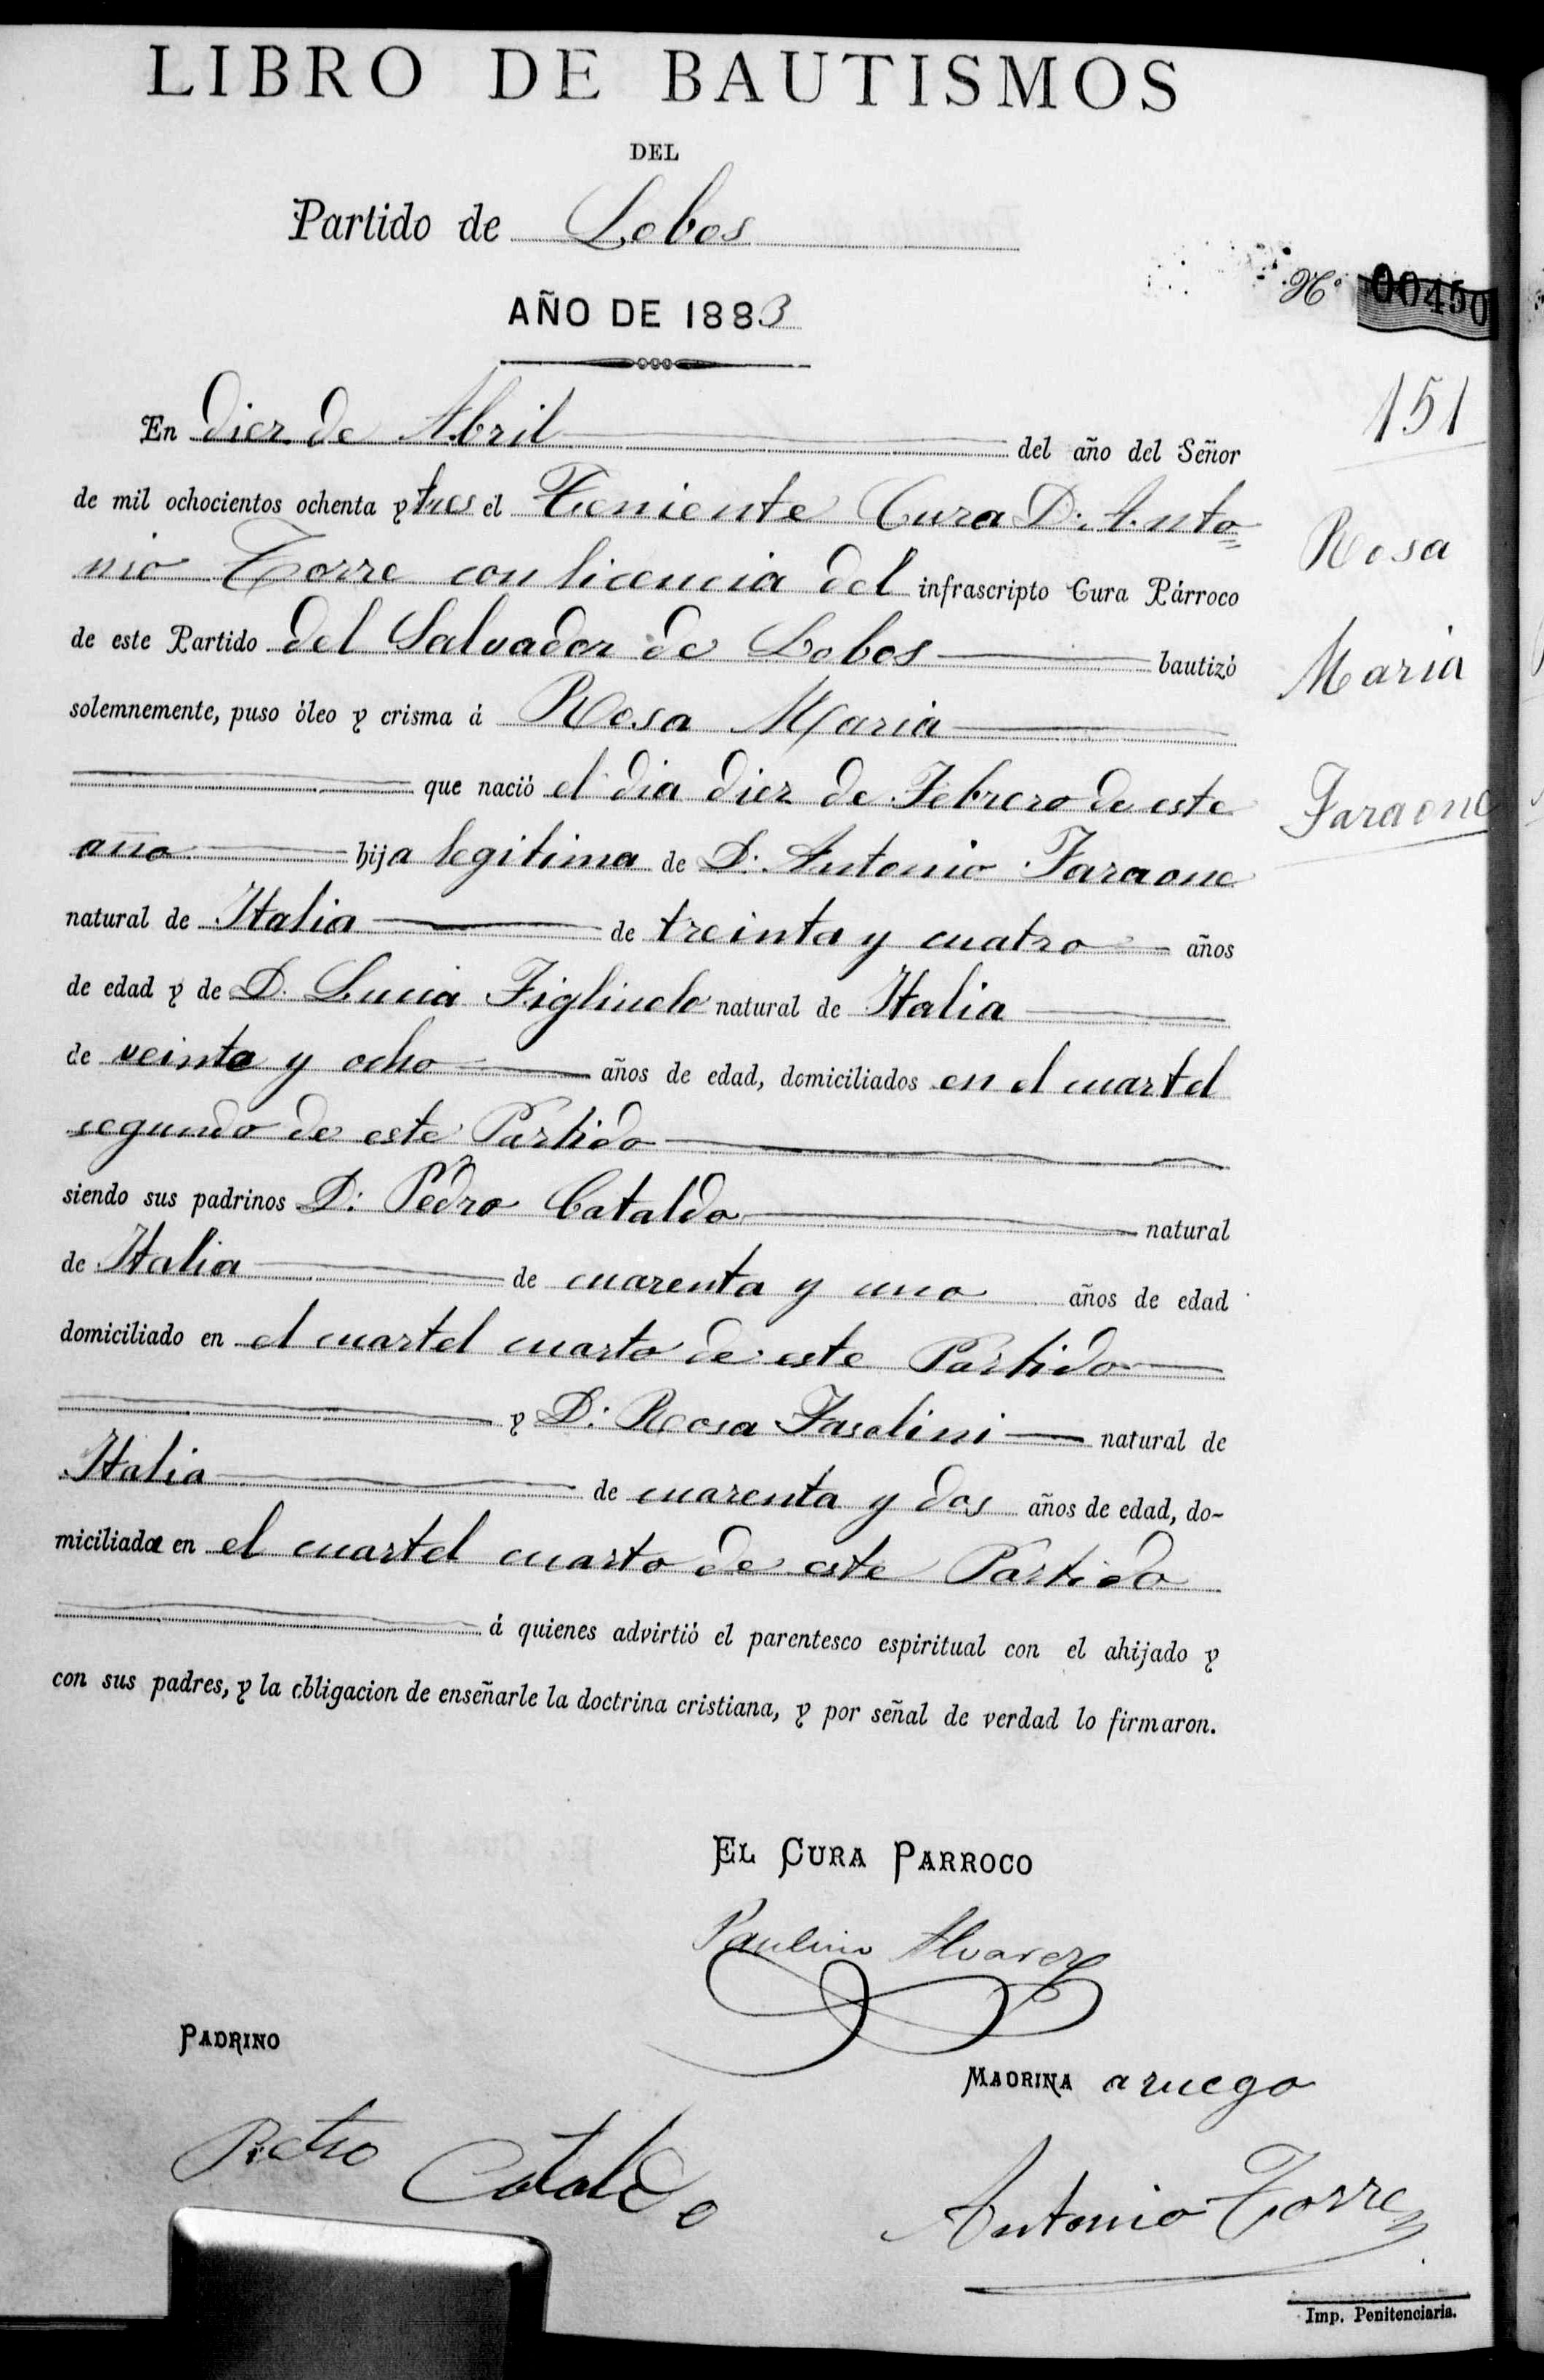 LIBRO DE BAUTISMOS
DEL
Partido de Lobos
AÑO DE 1883
Nº 00450
151
Rosa
Maria
Faraone
En diez de Abril del año del Señor
de mil ochocientos ochenta y tres el Teniente Cura D. Anto=
nio Torre con licencia del infrascripto Cura Párroco
de este Partido del Salvador de Lobos bautizó
solemnemente, puso óleo y crisma á Rosa Maria
que nació el dia diez de Febrero de este
año hija legitima de D. Antonio Faraone
natural de Italia de treinta y cuatro años
de edad y de D. Lucia Figliuolo natural de Italia
de veinte y ocho años de edad, domiciliados en el cuartel
segundo de este Partido
siendo sus padrinos D. Pedro Cataldo natural
de Italia de cuarenta y uno años de edad
domiciliado en el cuartel cuarto de este Partido
y D. Rosa Fasolini natural de
Italia de cuarenta y dos años de edad, do-
miciliada en el cuartel cuarto de este Partido
á quienes advirtió el parentesco espiritual con el ahijado y
con sus padres, y la obligacion de enseñarle la doctrina cristiana, y por señal de verdad lo firmaron.
EL CURA PARROCO
Paulino Alvarez
PADRINO
MADRINA a ruego
Pietro Cataldo
Antonio Torre
Imp. Penitenciaria.